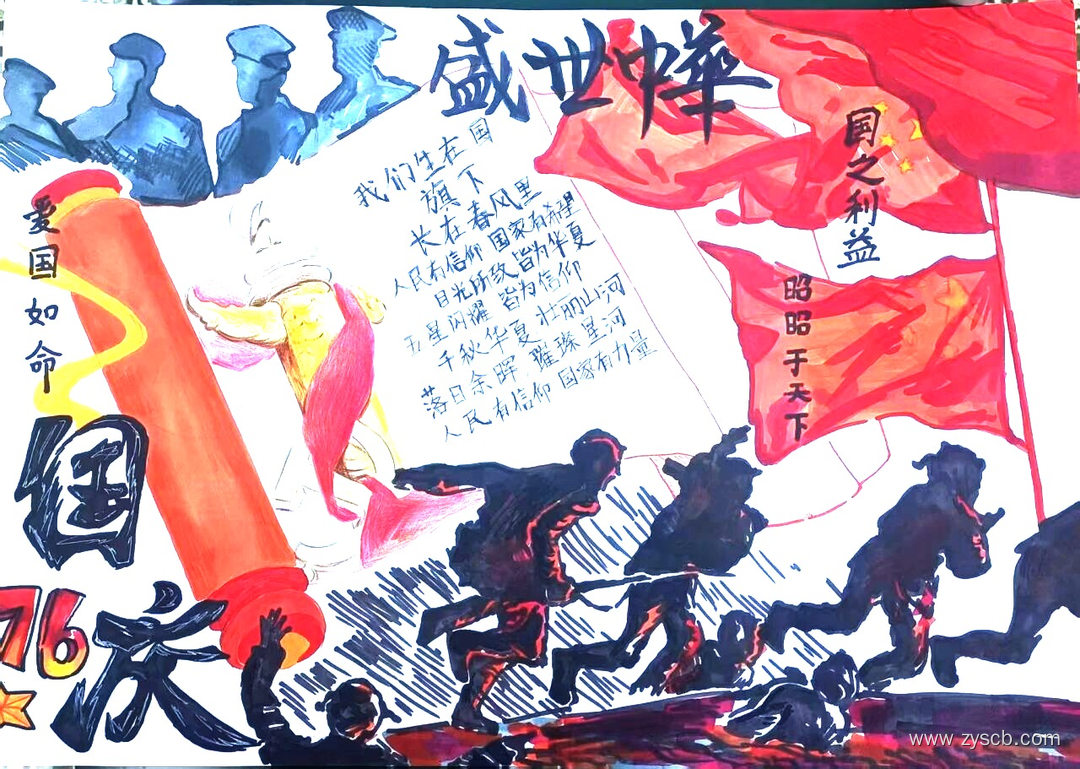 盛世中華
我们生在国
旗下
长在春风里
人民有信仰 国家有希望
目光所致 皆为华夏
五星闪耀 皆为信仰
千秋华夏 壮丽山河
落日余晖 璀璨星河
人民有信仰 国家有力量
国之利益
昭昭于天下
爱国如命
国
庆
76
www.zyscb.com